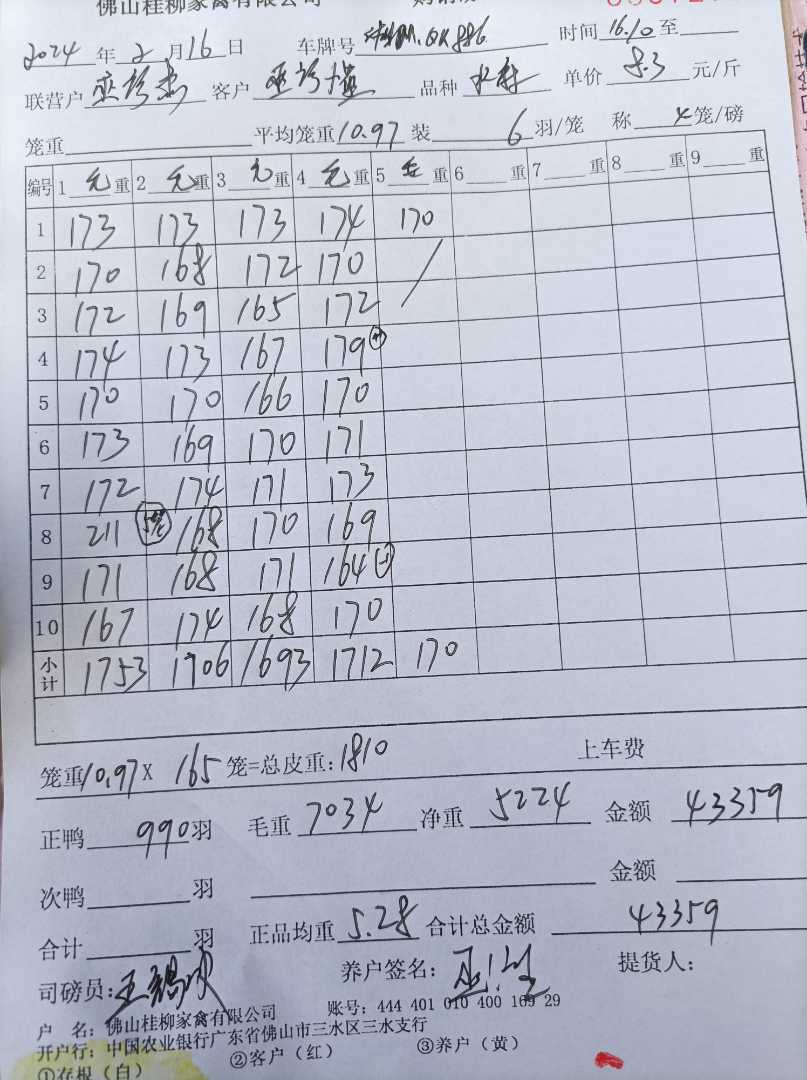 佛山桂柳家禽有限公司
2024年2月16日 车牌号 886 时间16.10至
联营户 客户 品种 单价8.3元/斤
笼重 平均笼重10.97装6羽/笼 称4笼/磅
编号 1 元 重 2 元 重 3 元 重 4 元 重 5 重 6 重 7 重 8 重 9 重
1 173 173 173 174 170
2 170 168 172 170 /
3 172 169 165 172
4 174 173 167 179
5 170 170 166 170
6 173 169 170 171
7 172 174 171 173
8 211 168 170 169
9 171 168 171 164
10 167 174 168 170
小计 1753 1706 1693 1712 170
笼重10.97X 165笼=总皮重:1810 上车费
正鸭990羽 毛重7034 净重5224 金额43359
次鸭 羽 金额
合计 羽 正品均重5.28 合计总金额43359
司磅员: 养户签名: 提货人:
户 名: 佛山桂柳家禽有限公司 账号: 444 401 010 400 169 29
开户行: 中国农业银行广东省佛山市三水区三水支行
①存根(白) ②客户(红) ③养户(黄)